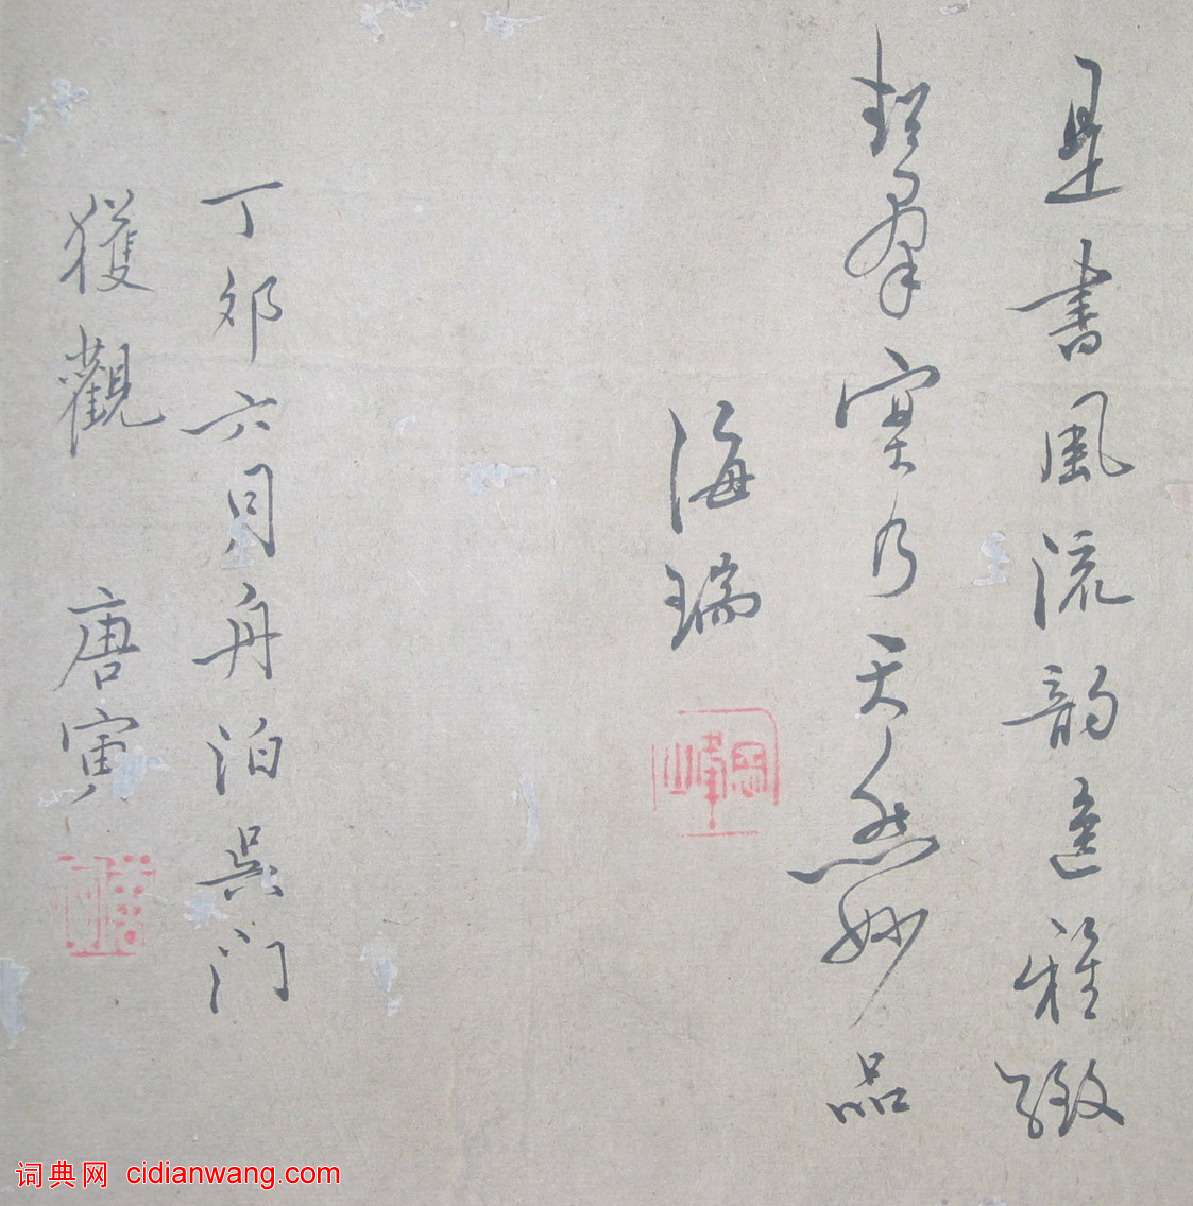 是書風流韵遠雅緻
超羣實乃天然妙品
海瑞
丁卯六月舟泊吳門
獲觀 唐寅
词典网 cidianwang.com